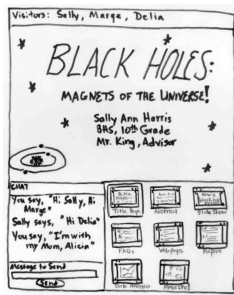 Visitors: Sally, Marge, Delia
BLACK HOLES:
MAGNETS OF THE UNIVERSE!
Sally Ann Harris
BHS, 10th Grade
Mr. King, Advisor
CHAT
You say, "Hi Sally, Hi
Marge"
Sally says, "Hi Delia"
You say, "I'm with
my Mom, Alicia"
Message to Send
Send
Title Page
Abstract
Slide Show
FAQs
Web Pages
Report